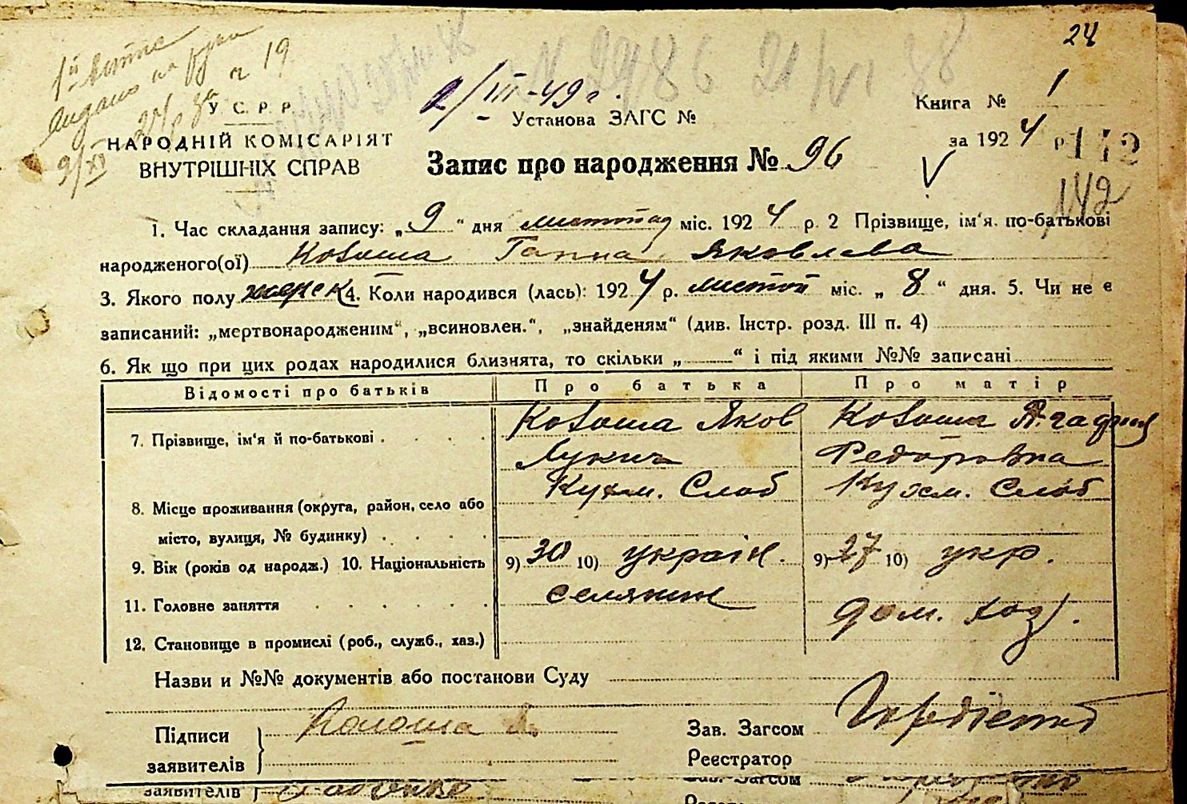 24
У. С. Р. Р.
НАРОДНІЙ КОМІСАРІЯТ
ВНУТРІШНІХ СПРАВ
2/III-49 г.
Установа ЗАГС №
Книга № 1
за 1924 р.
142
Запис про народження № 96
1. Час складання запису: „9" дня листопад міс. 1924 р. 2 Прізвище, ім'я, по-батькові
народженого(ої) Ганна Яковлева
3. Якого полу 4. Коли народився (лась): 1924 р. листоп міс. „8" дня. 5. Чи не є
записаний: „мертвонародженим", „всиновлен.", „знайденям" (див. Інстр. розд. III п. 4)
6. Як що при цих родах народилися близнята, то скільки „ " і під якими №№ записані
Відомості про батьків Про батька Про матір
7. Прізвище, ім'я й по-батькові Яков
Лукич Федоровна
Слоб Слоб
8. Місце проживання (округа, район, село або
місто, вулиця, № будинку)
9. Вік (років од народж.) 10. Національність 9) 30 10) україн. 9) 27 10) укр.
11. Головне заняття селянин дом. хоз.
12. Становище в промислі (роб., служб., хаз.)
Назви и №№ документів або постанови Суду
Підписи
заявителів
Зав. Загсом
Реєстратор
заявителів
Зав. Загсом